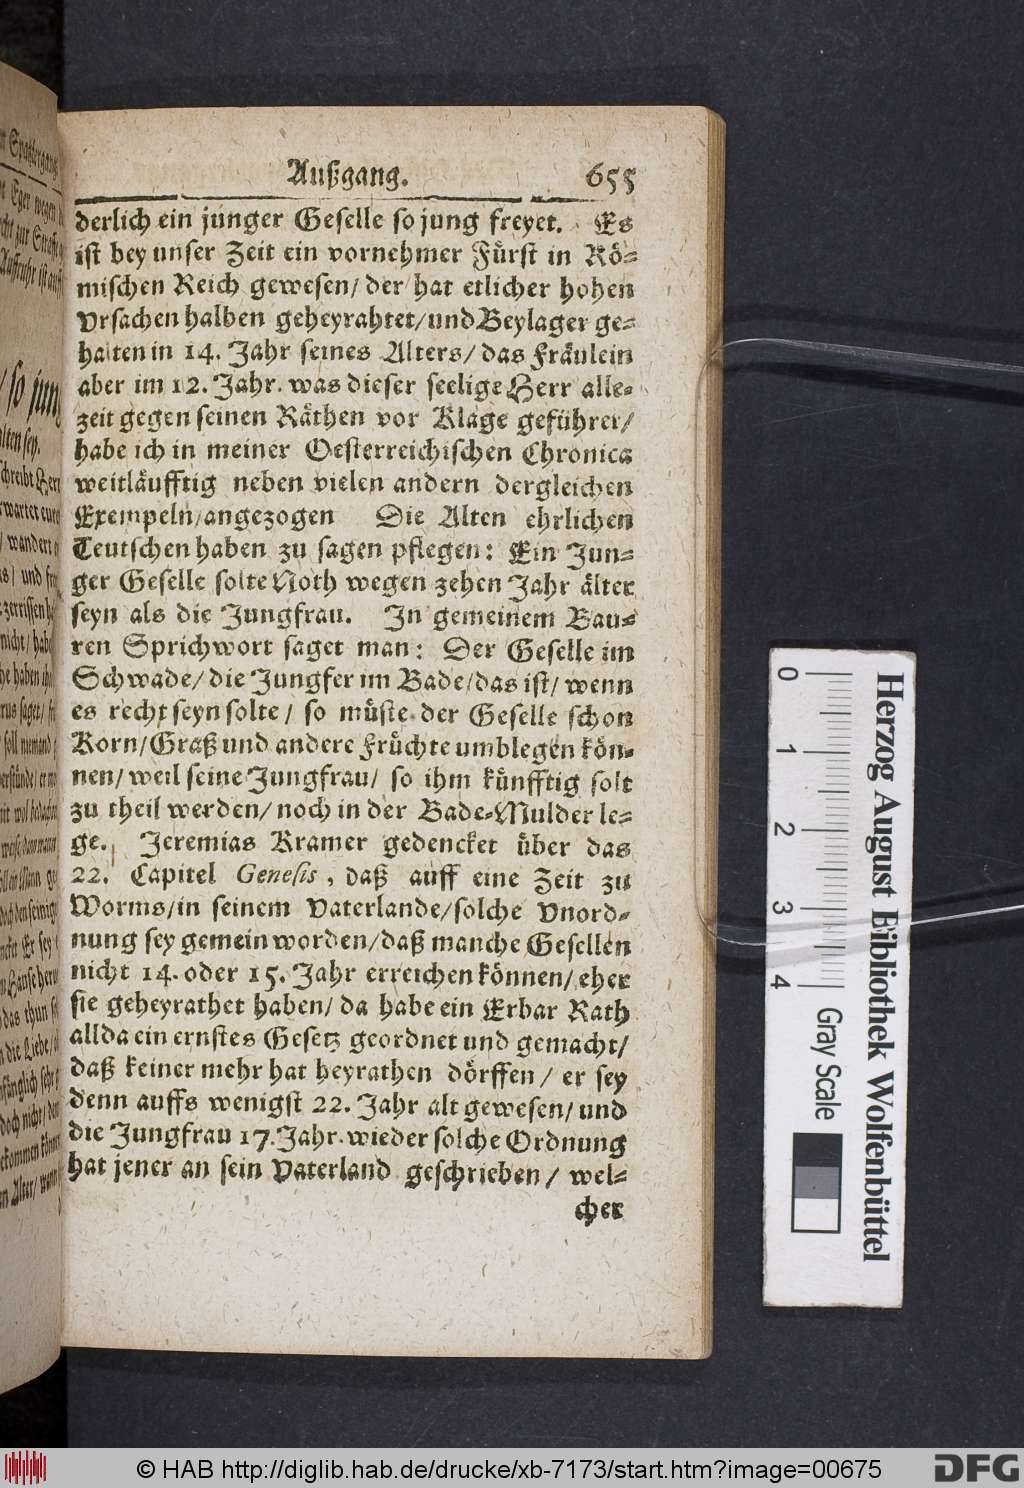 Außgang. 655
derlich ein junger Geselle so jung freyet. Es
ist bey unser Zeit ein vornehmer Fürst in Rö-
mischen Reich gewesen/ der hat etlicher hohen
Vrsachen halben geheyrahtet/ und Beylager ge-
halten in 14. Jahr seines Alters/ das Fräulein
aber im 12. Jahr. was dieser seelige Herr alle-
zeit gegen seinen Räthen vor Klage geführer/
habe ich in meiner Oesterreichischen Chronica
weitläufftig neben vielen andern dergleichen
Exempeln/ angezogen Die Alten ehrlichen
Teutschen haben zu sagen pflegen: Ein Jun-
ger Geselle solte Noth wegen zehen Jahr älter
seyn als die Jungfrau. In gemeinem Bau-
ren Sprichwort saget man: Der Geselle im
Schwade/ die Jungfer im Bade/ das ist/ wenn
es recht seyn solte/ so müste der Geselle schon
Korn/ Graß und andere Früchte umblegen kön-
nen/ weil seine Jungfrau/ so ihm künfftig solt
zu theil werden/ noch in der Bade-Mulder le-
ge. Jeremias Kramer gedencket über das
22. Capitel Genesis, daß auff eine Zeit zu
Worms/ in seinem Vaterlande/ solche Vnord-
nung sey gemein worden/ daß manche Gesellen
nicht 14. oder 15. Jahr erreichen können/ eher
sie geheyrathet haben/ da habe ein Erbar Rath
allda ein ernstes Gesetz geordnet und gemacht/
daß keiner mehr hat heyrathen dörffen/ er sey
denn auffs wenigst 22. Jahr alt gewesen/ und
die Jungfrau 17. Jahr. wieder solche Ordnung
hat jener an sein Vaterland geschrieben/ wel-
cher
0 1 2 3 4
Gray Scale
Herzog August Bibliothek Wolfenbüttel
© HAB http://diglib.hab.de/drucke/xb-7173/start.htm?image=00675
DFG